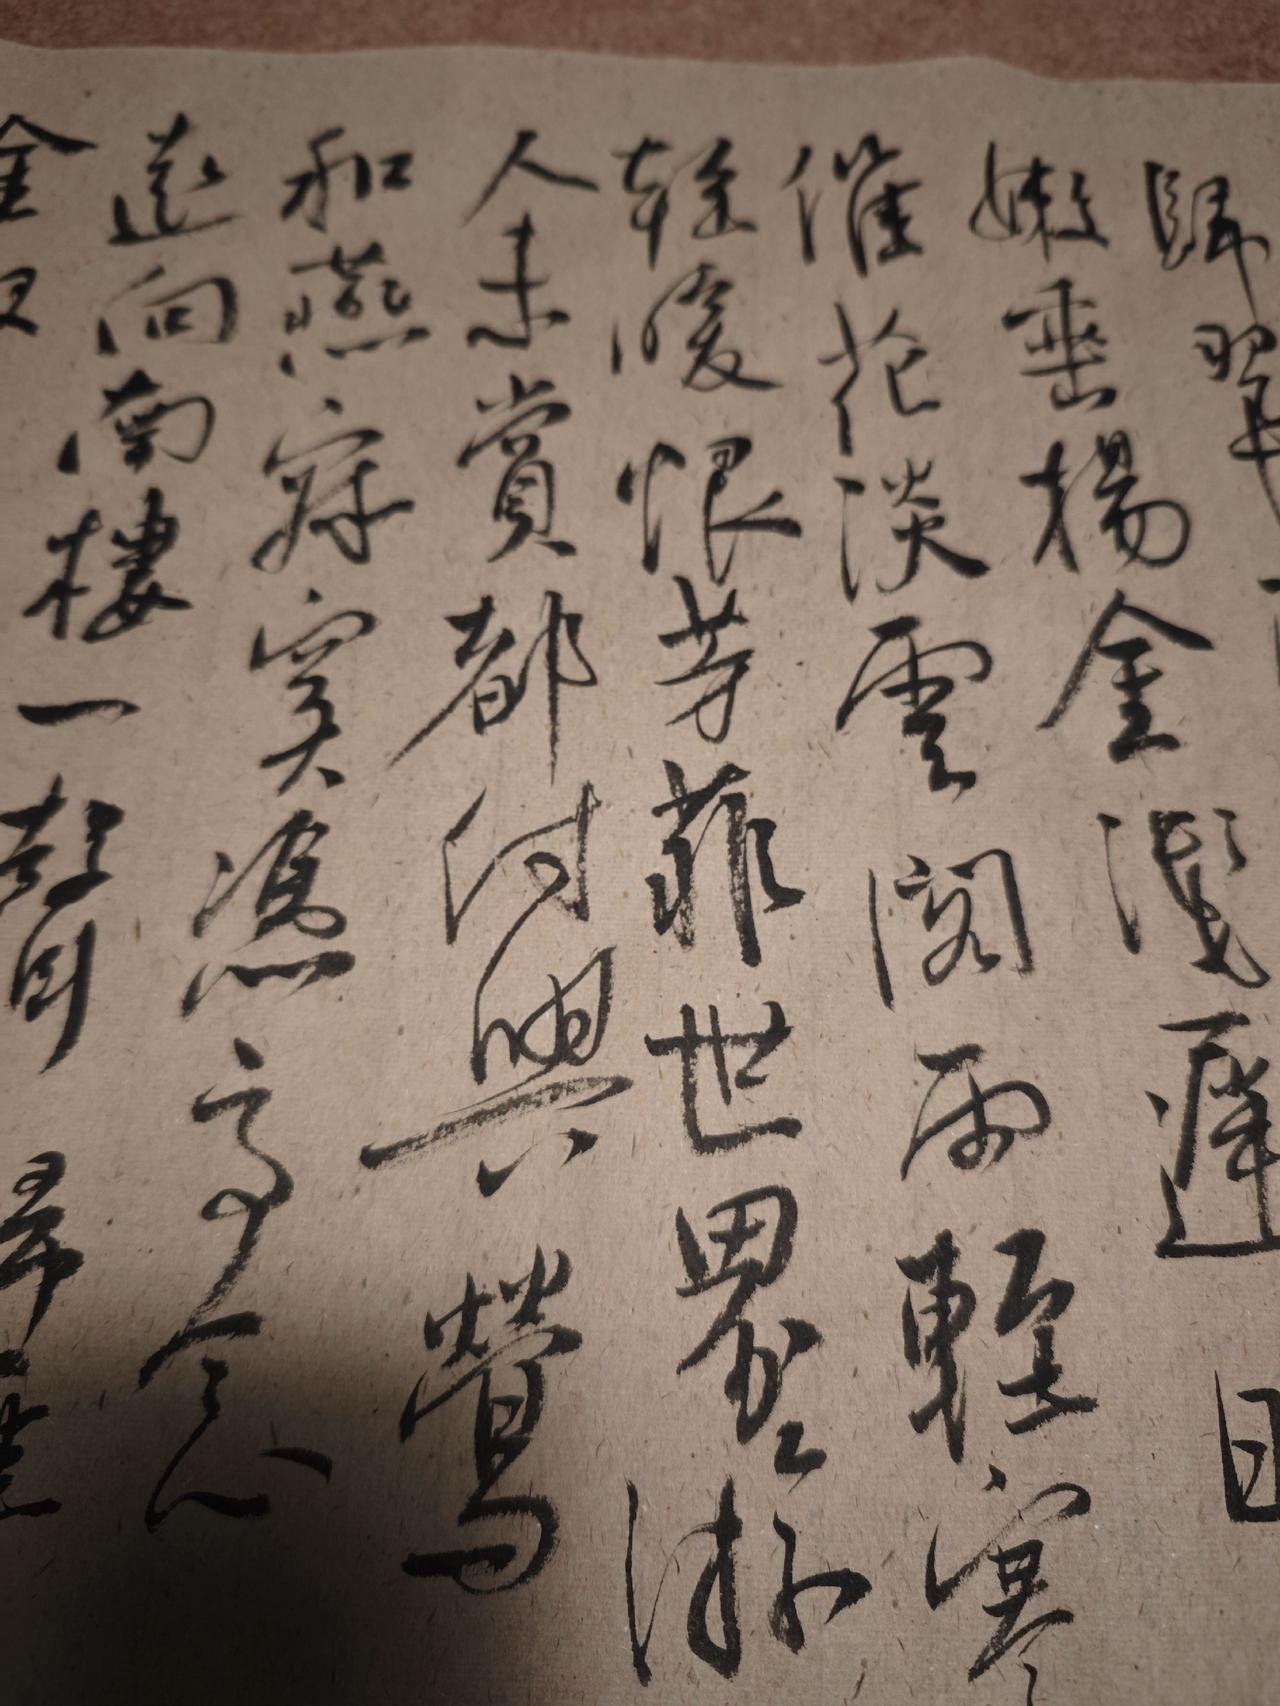 歸翠
嫩垂楊金淺遲日
催花淡雲閣雨輕寒
輕暖恨芳菲世界游
人未賞都付與鶯
和燕寂寞憑高念
遠向南樓一聲歸
金